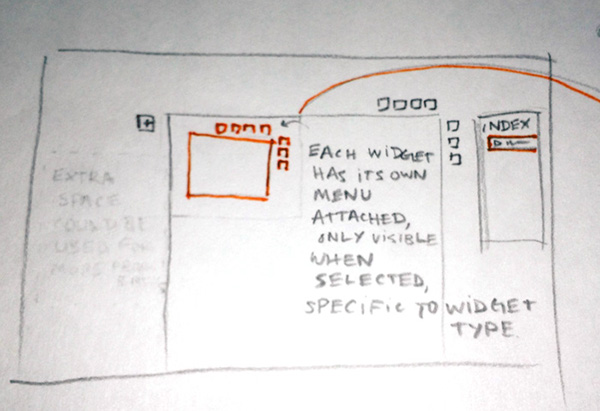 EXTRA
SPACE
COULD BE
USED FOR
MORE
INDEX
EACH WIDGET
HAS ITS OWN
MENU
ATTACHED,
ONLY VISIBLE
WHEN
SELECTED,
SPECIFIC TO WIDGET
TYPE